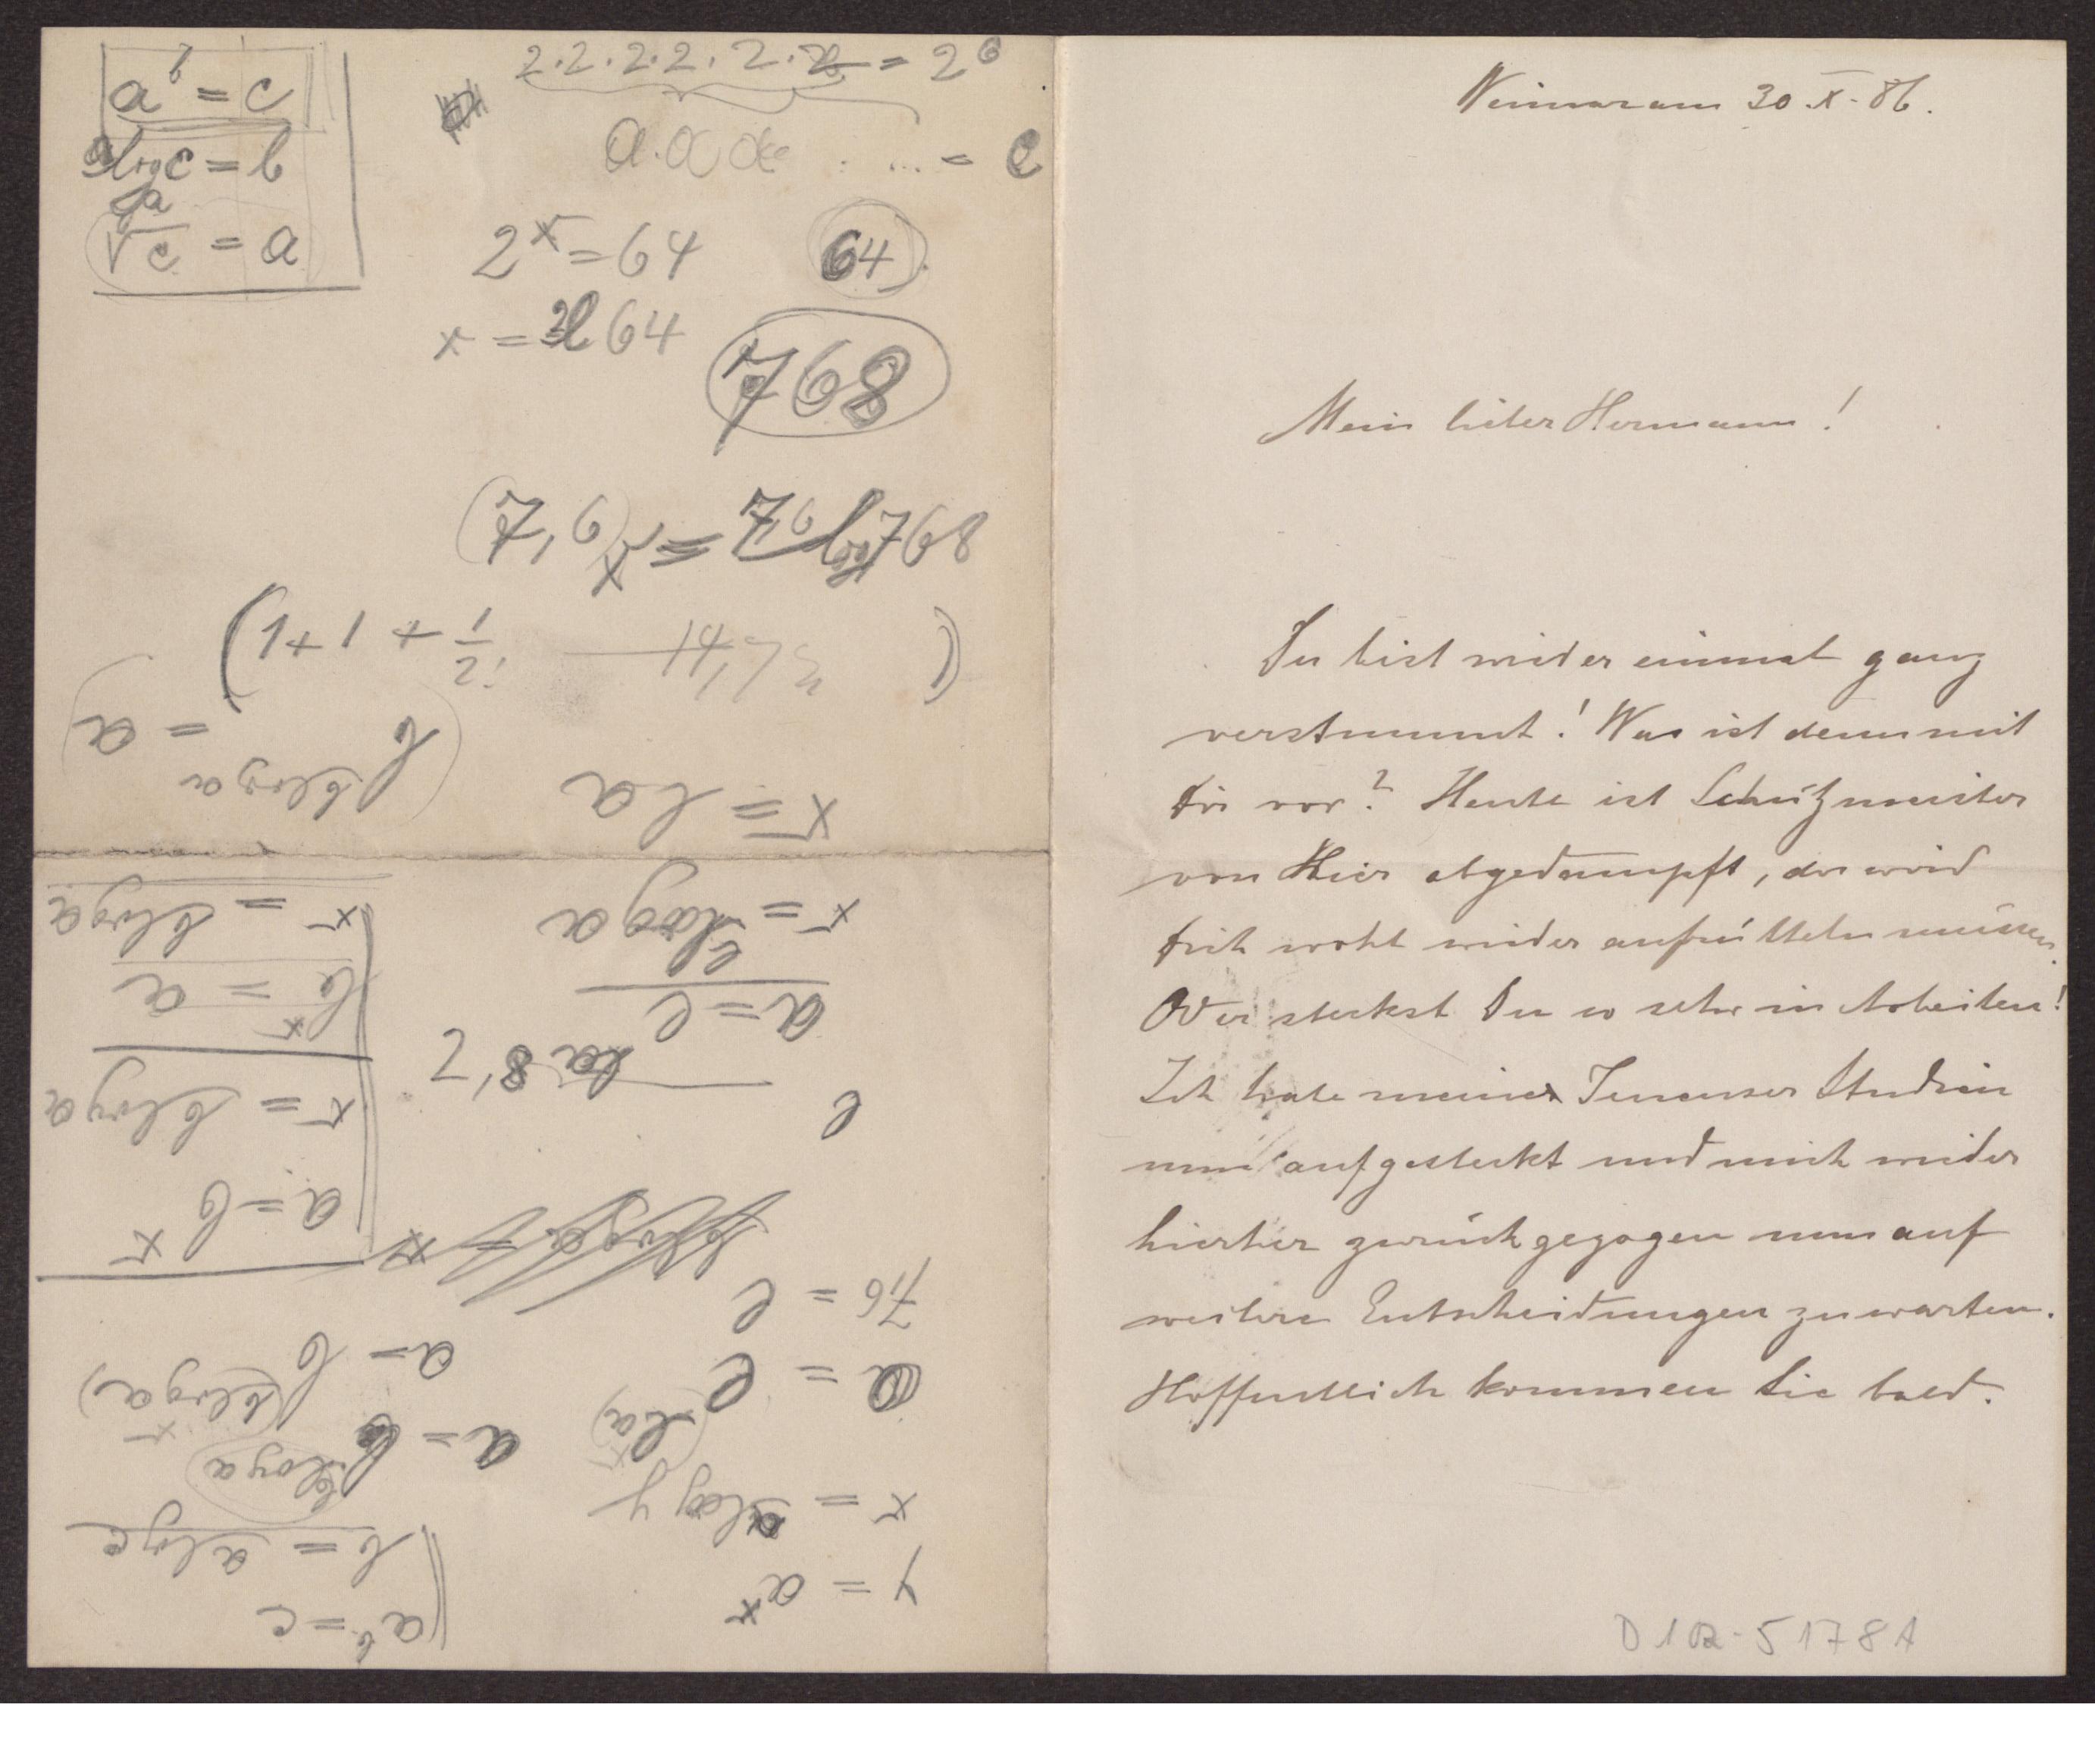 a^b = c
a log c = b
b√c = a
2·2·2·2·2·2 = 2^6
a·a a . ... = c
2^x = 64
64
x = 2l 64
768
(7,6)^x = 768
1+1+1/2!
b^(b log a) = a
x = la
x = b log a
b^x = a
x = b log a
a = b^x
x = e log a
a = e
la 8,2
e
7,6 = e
a = e^(la)
a = b^(b log a)
a = b^(b log a)
x = a log y
y = a^x
b = a log c
a^b = c
Weimar am 30.X.86.
Mein lieber Hermann!
Du bist wider einmal ganz
verstummt! Was ist denn mit
Dir vor? Heute ist Schützmeister
von Hier abgedampft, der wird
Dich wohl wider aufrütteln müssen.
Oder steckst Du so sehr in Arbeiten!
Ich habe meine Jenenser Studien
nun aufgesteckt und mich wider
hierher zurückgezogen um auf
weitere Entscheidungen zu warten.
Hoffentlich kommen Sie bald.
D 1 02-5178A